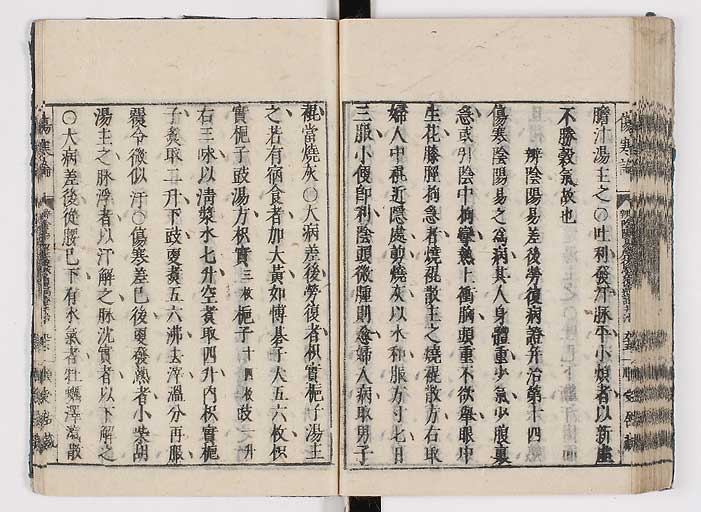 膽汁湯主之〇吐利發汗脉平小煩者以新虛
不勝穀氣故也
辨陰陽易差後勞復病證并治第十四
傷寒陰陽易之爲病其人身體重少氣少腹裏
急或引陰中拘攣熱上衝胸頭重不欲舉眼中
生花膝脛拘急者燒裩散主之燒裩散方右取
婦人中裩近隱處剪燒灰以水和服方寸匕日
三服小便卽利陰頭微腫則愈婦人病取男子
裩當燒灰〇大病差後勞復者枳實梔子湯主
之若有宿食者加大黃如博碁子大五六枚枳
實梔子豉湯方枳實三枚梔子十四枚豉一升
右三味以淸漿水七升空煮取四升內枳實梔
子煮取二升下豉更煮五六沸去滓溫分再服
覆令微似汗〇傷寒差已後更發熱者小柴胡
湯主之脉浮者以汗解之脉沈實者以下解之
〇大病差後從腰已下有水氣者牡蠣澤瀉散
傷寒論
傷寒論